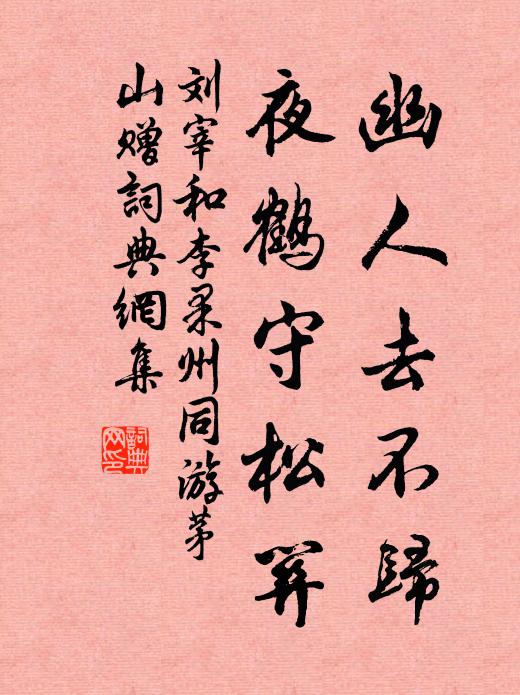 幽人去不歸
夜鶴守松關
刘宰和李果州同游茅
山赠詞典網集
詞典
网印